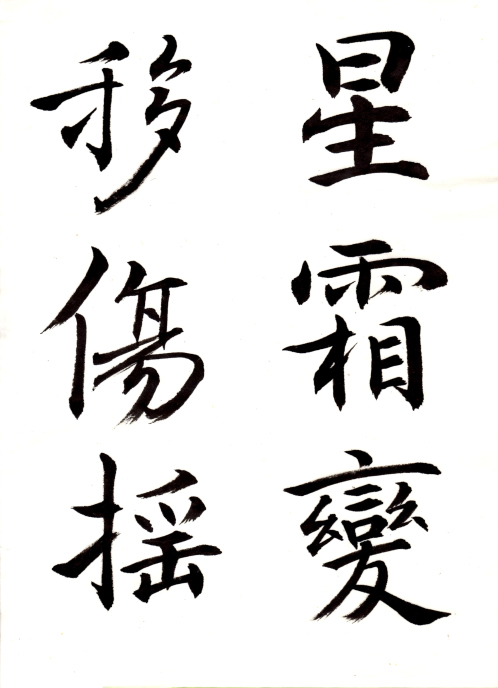 星霜變
移傷搖